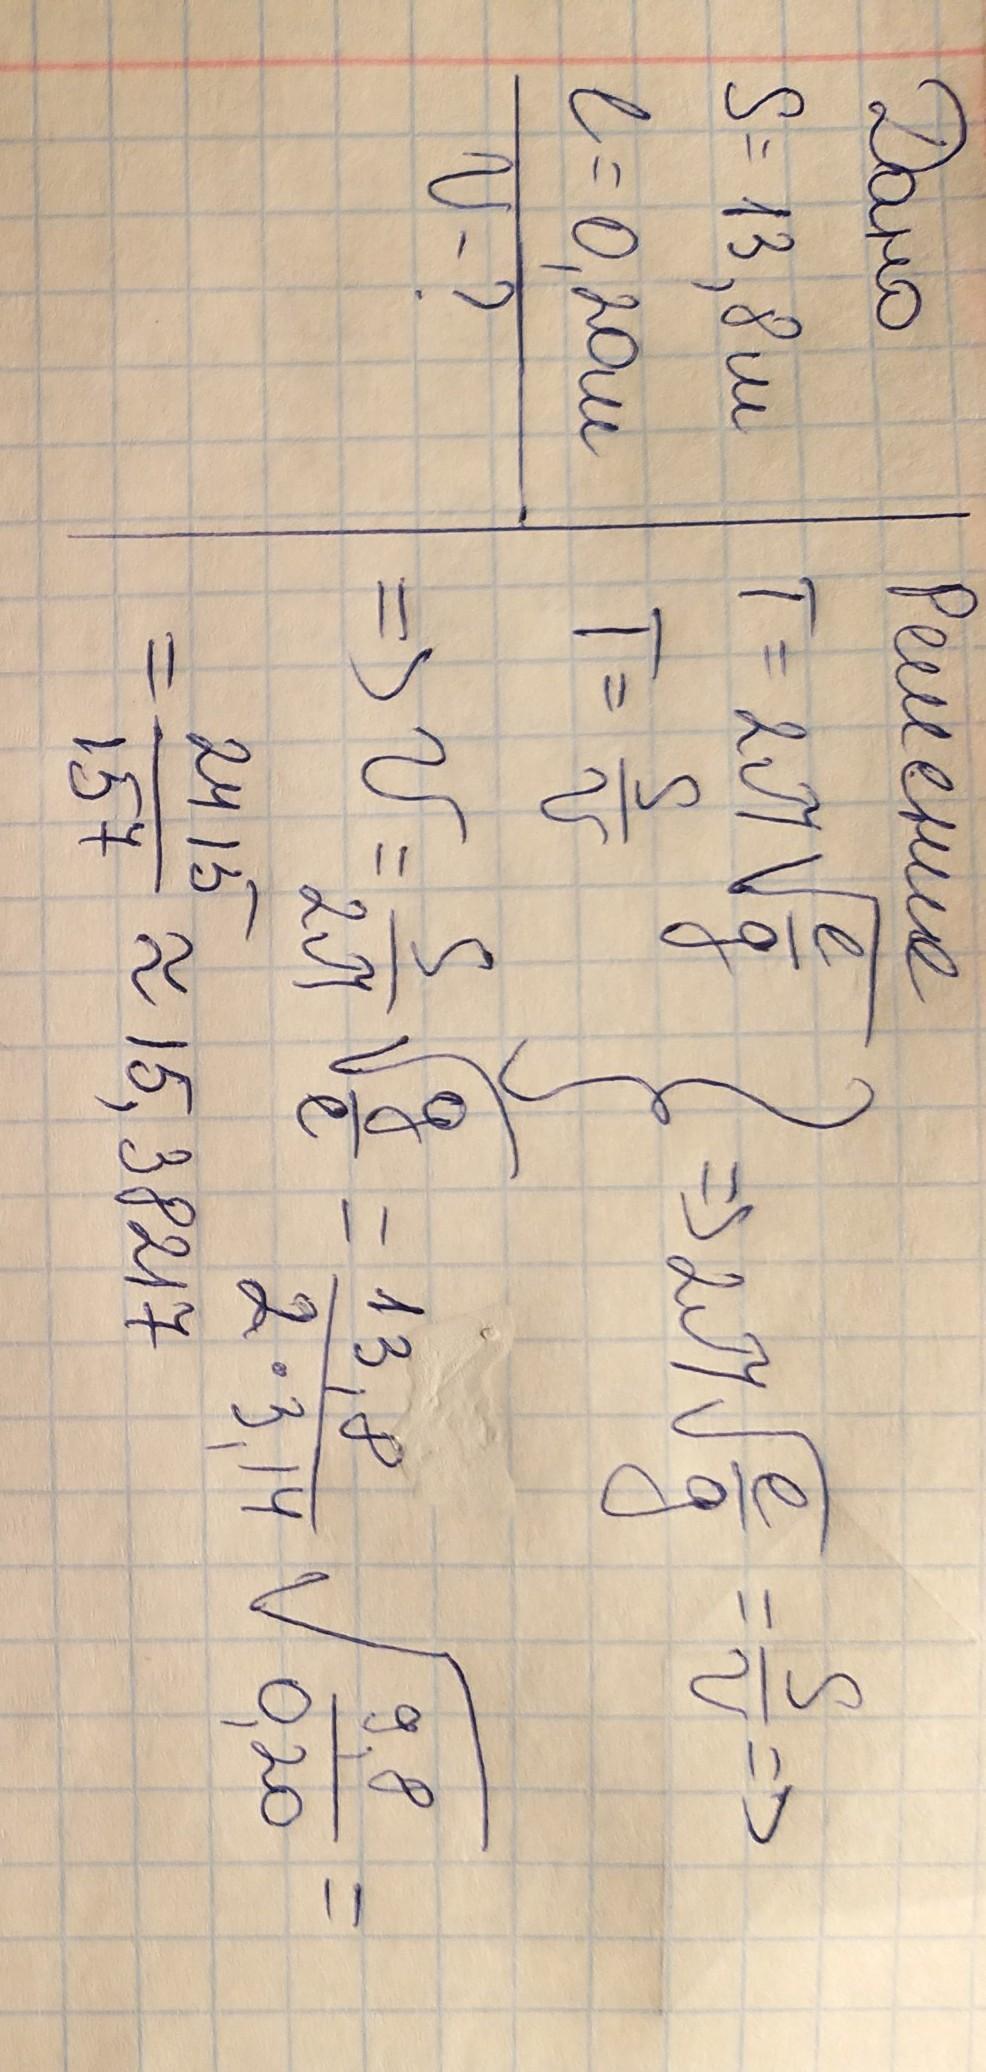 Дано
S = 13,8 м
l = 0,20 м
v - ?
Решение
T = 2π√(l/g)
T = S/v
} => 2π√(l/g) = S/v =>
=> v = S/2π √(g/l) = 13,8/(2·3,14) √(9,8/0,20) =
= 2415/157 ≈ 15,38217